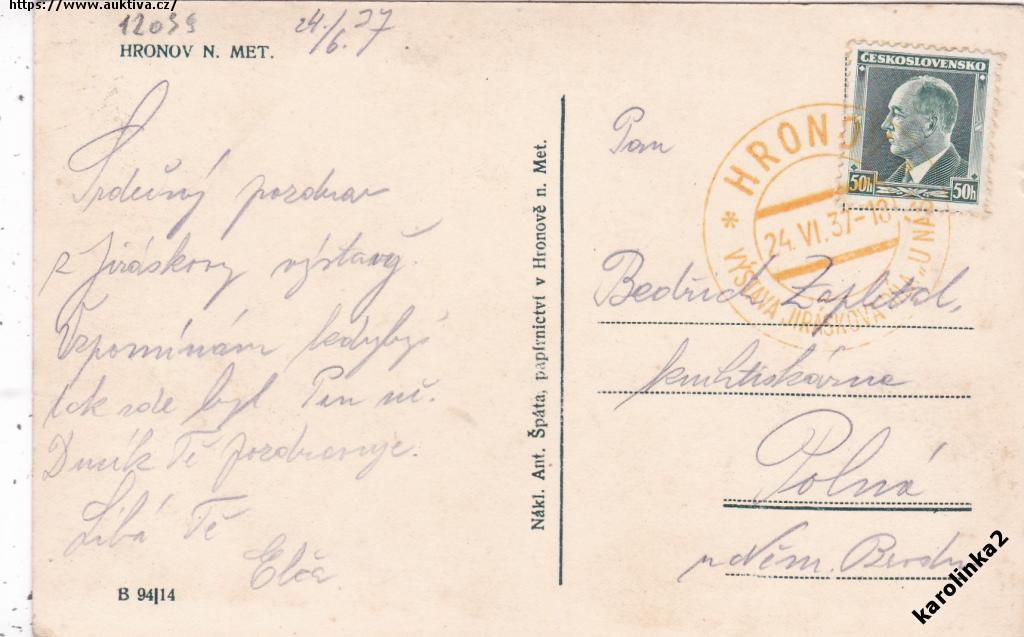 https://www.auktiva.cz/
12039
24./6.37
HRONOV N. MET.
Srdečný pozdrav
z Jiráskovy výstavy.
Vzpomínám kdybys
tak zde byl Pan uč.
Dusík Tě pozdravuje.
Líbá Tě
Elča
B 94|14
Nákl. Ant. Špáta, papírnictví v Hronově n. Met.
ČESKOSLOVENSKO
50h 50h
HRONO
24.VI.37-18
* VÝSTAVA JIRÁSKOVA „U NÁS
Pan
Bedřich Zapletal,
knihtiskárna
Polná
u Něm. Brodu
karolinka2